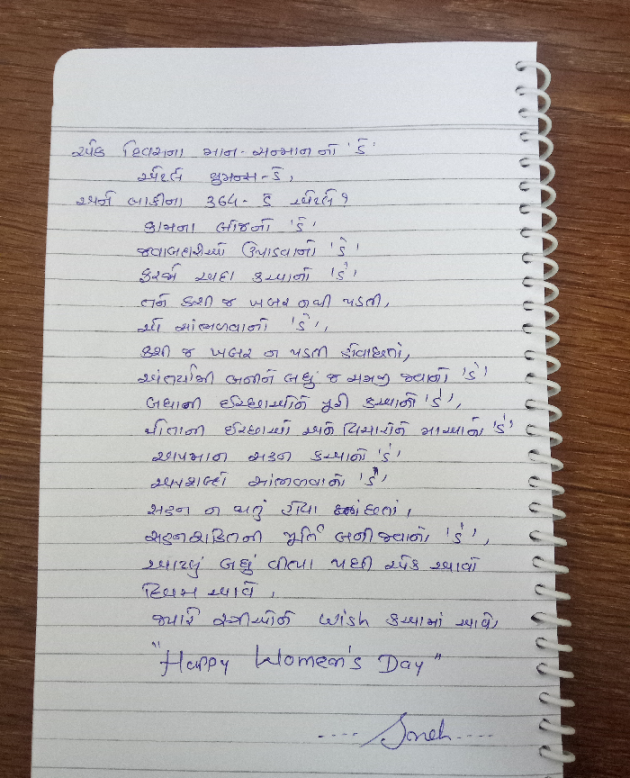 એક દિવસના માન-સન્માન નો 'ડે'
એટલે વુમન્સ-ડે,
અને બાકીના 364-ડે એટલે?
કામના બોજનો 'ડે'
જવાબદારીઓ ઉપાડવાનો 'ડે'
ફરજો અદા કરવાનો 'ડે'
તને કશી જ ખબર નથી પડતી,
એ સાંભળવાનો 'ડે',
કશી જ ખબર ન પડતી હોવાછતાં,
અંતર્યામી બનીને બધું જ સમજી જવાનો 'ડે'
બધાની ઈચ્છાઓને પૂરી કરવાનો 'ડે',
પોતાની ઈચ્છાઓ અને વિચારોને મારવાનો 'ડે'
અપમાન સહન કરવાનો 'ડે'
અપશબ્દો સાંભળવાનો 'ડે'
સહન ન થતું હોવા છતાં,
સહનશક્તિની મૂર્તિ બની જવાનો 'ડે',
આટલું બધું વીત્યા પછી એક આવો
દિવસ આવે,
જ્યારે સ્ત્રીઓને wish કરવામાં આવે,
"Happy Women's Day"
---- Sneh ----